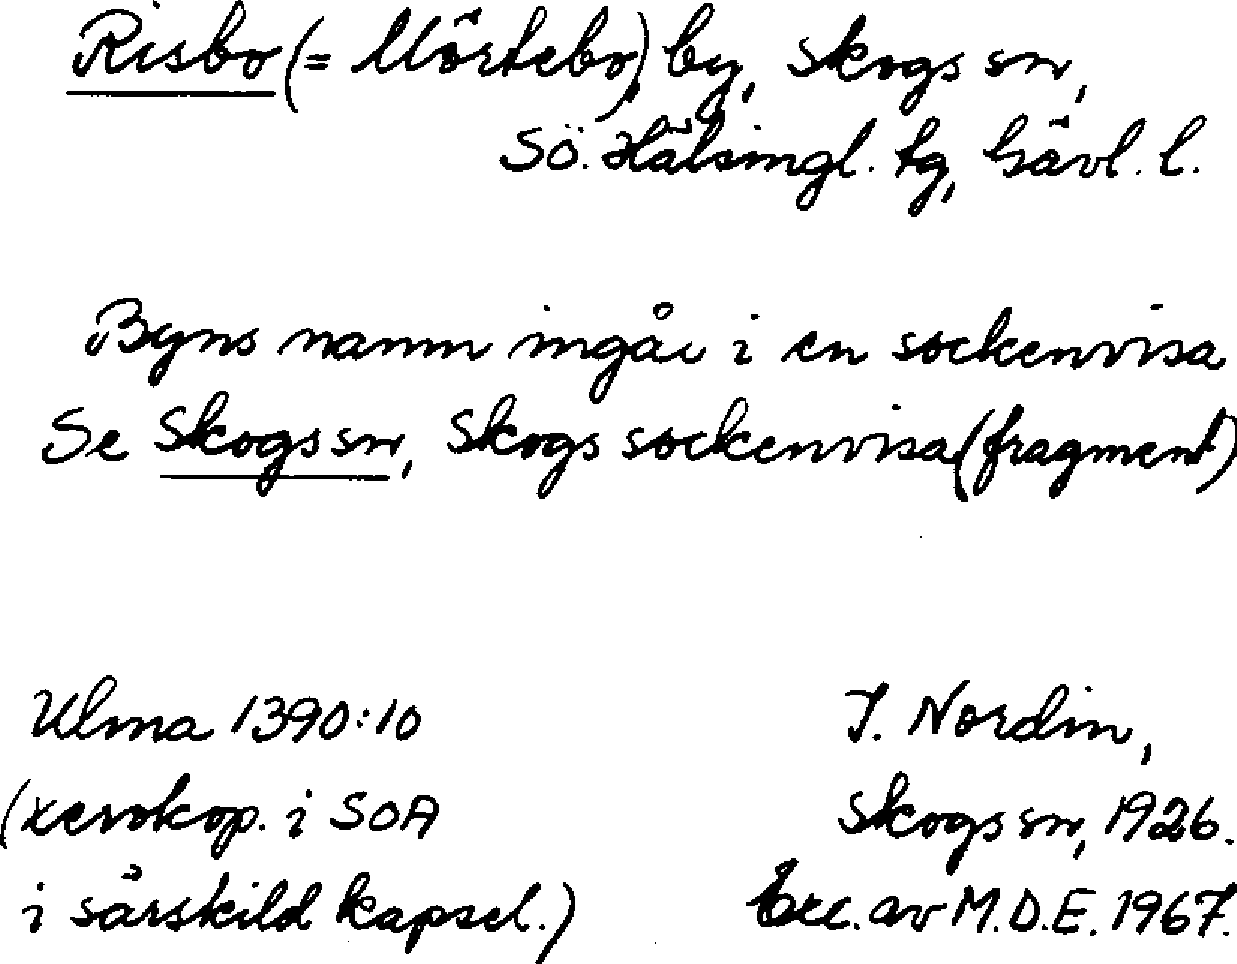 Risbo (= Mörtebo) by, Skogs sn,
Sö. Hälsingl. tg, Gävl. l.
Byns namn ingår i en sockenvisa
Se Skogs sn, Skogs sockenvisa (fragment)
Ulma 1390:10
(xerokop. i SOA
i särskild kapsel.)
J. Nordin,
Skogs sn, 1926.
Exc. av M.D.E. 1967.